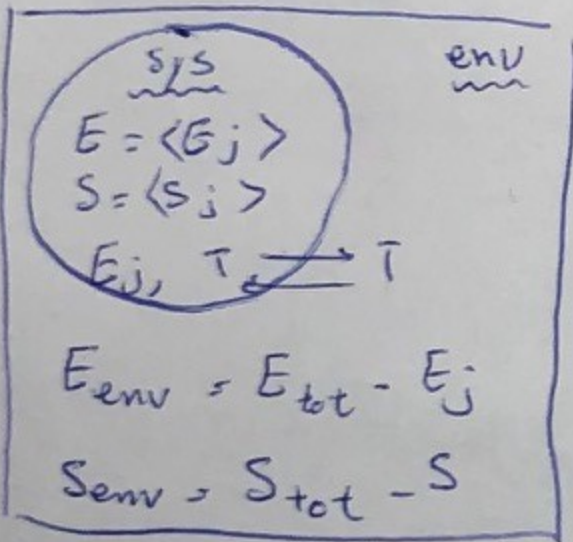 sys
env
E = <Ej>
S = <Sj>
Ej, T ⇄ T
Eenv = Etot - Ej
Senv = Stot - S